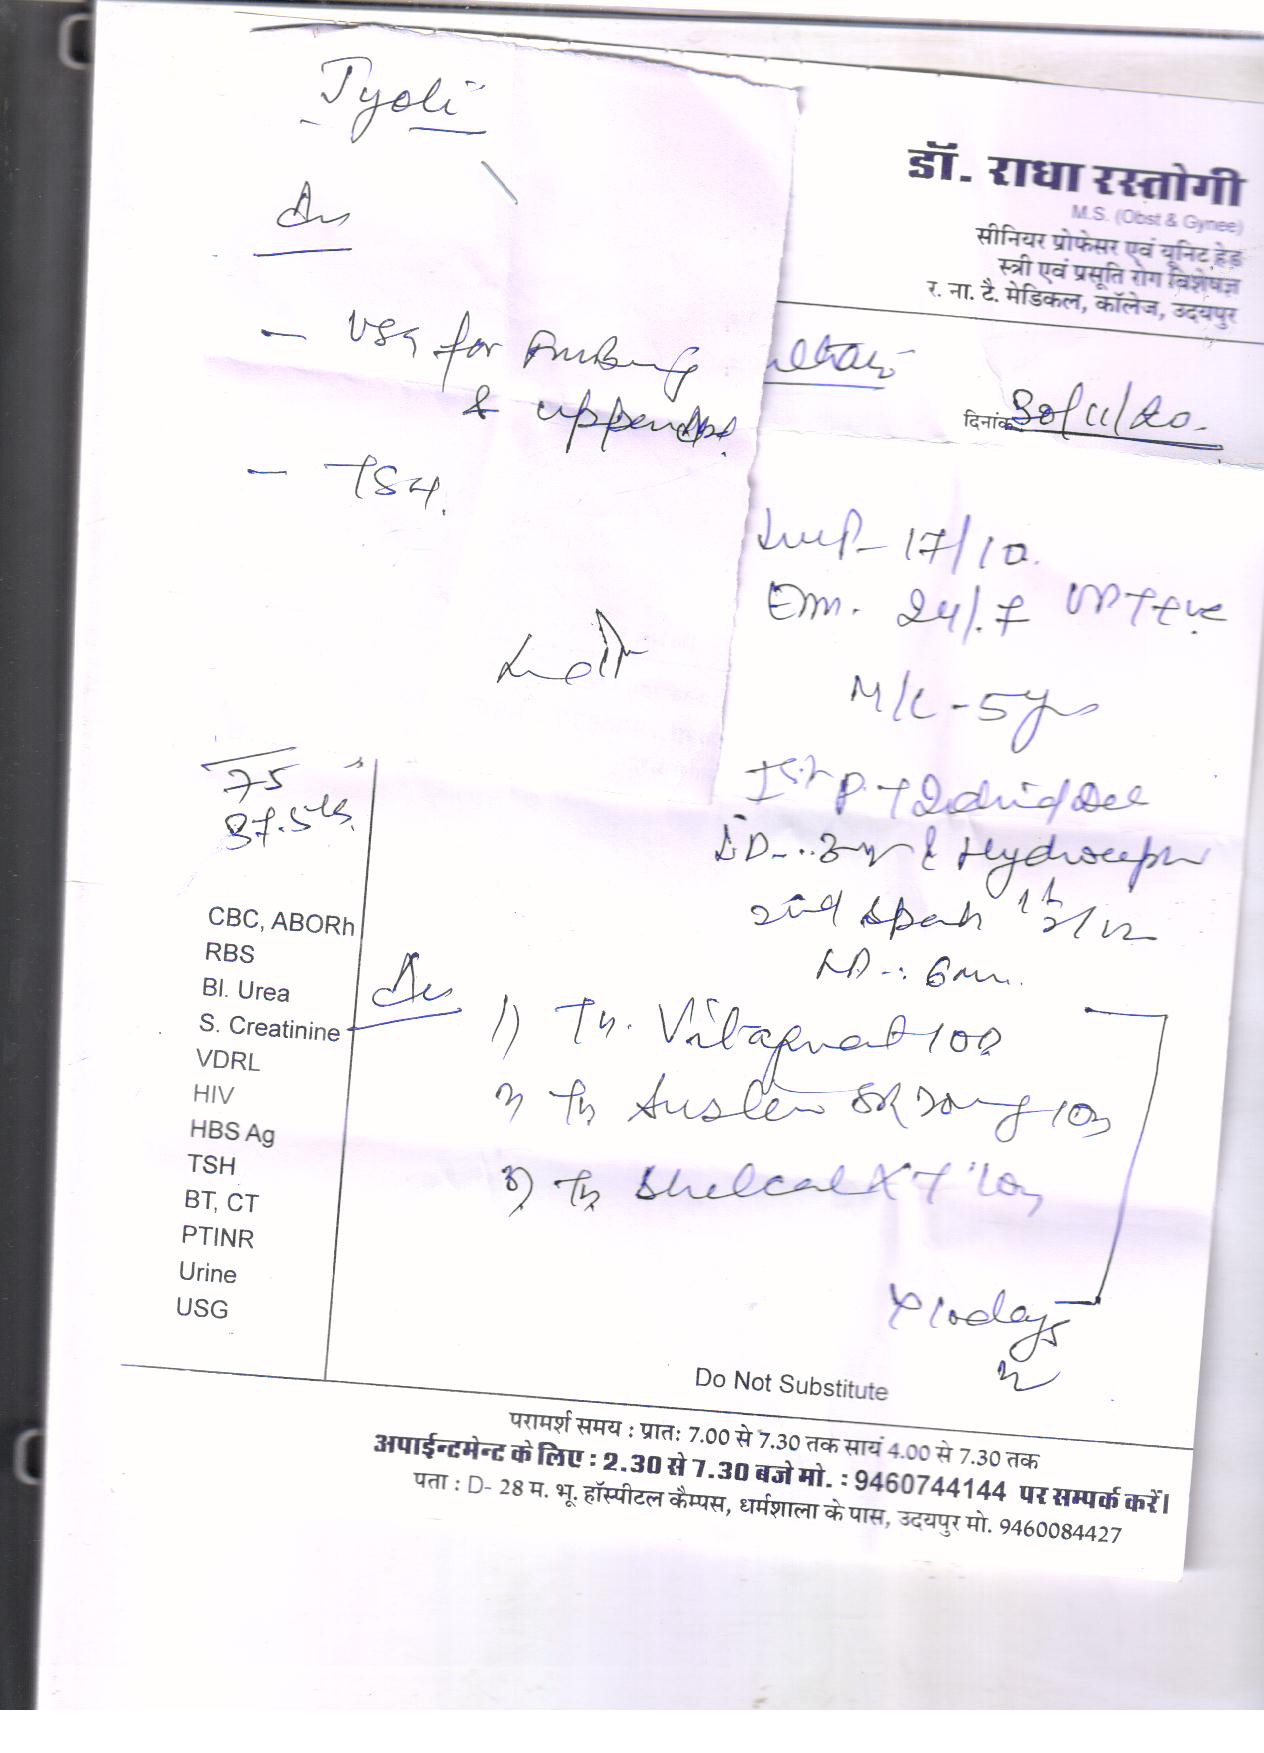 Jyoti
Adv
- USG for
& appendix
- TSH.
डॉ. राधा रस्तोगी
M.S. (Obst & Gynec)
सीनियर प्रोफेसर एवं यूनिट हेड
स्त्री एवं प्रसूति रोग विशेषज्ञ
र. ना. टै. मेडिकल, कॉलेज, उदयपुर
दिनांक 30/11/20.
LMP - 17/10.
EDD. 24/7 UPT +ve
M/L - 5 yr
Ist P.
LD-
2nd
LD -: 6
75
37.5 kg
CBC, ABORh
RBS
Bl. Urea
S. Creatinine
VDRL
HIV
HBS Ag
TSH
BT, CT
PTINR
Urine
USG
Adv
1) Tb. 10D
2) Tb Susten SR 10D
3) Tb Shelcal XT 10D
x 10 days
Do Not Substitute
परामर्श समय : प्रातः 7.00 से 7.30 तक सायं 4.00 से 7.30 तक
अपाईन्टमेन्ट के लिए : 2.30 से 7.30 बजे मो. : 9460744144 पर सम्पर्क करें।
पता : D- 28 म. भू. हॉस्पीटल कैम्पस, धर्मशाला के पास, उदयपुर मो. 9460084427